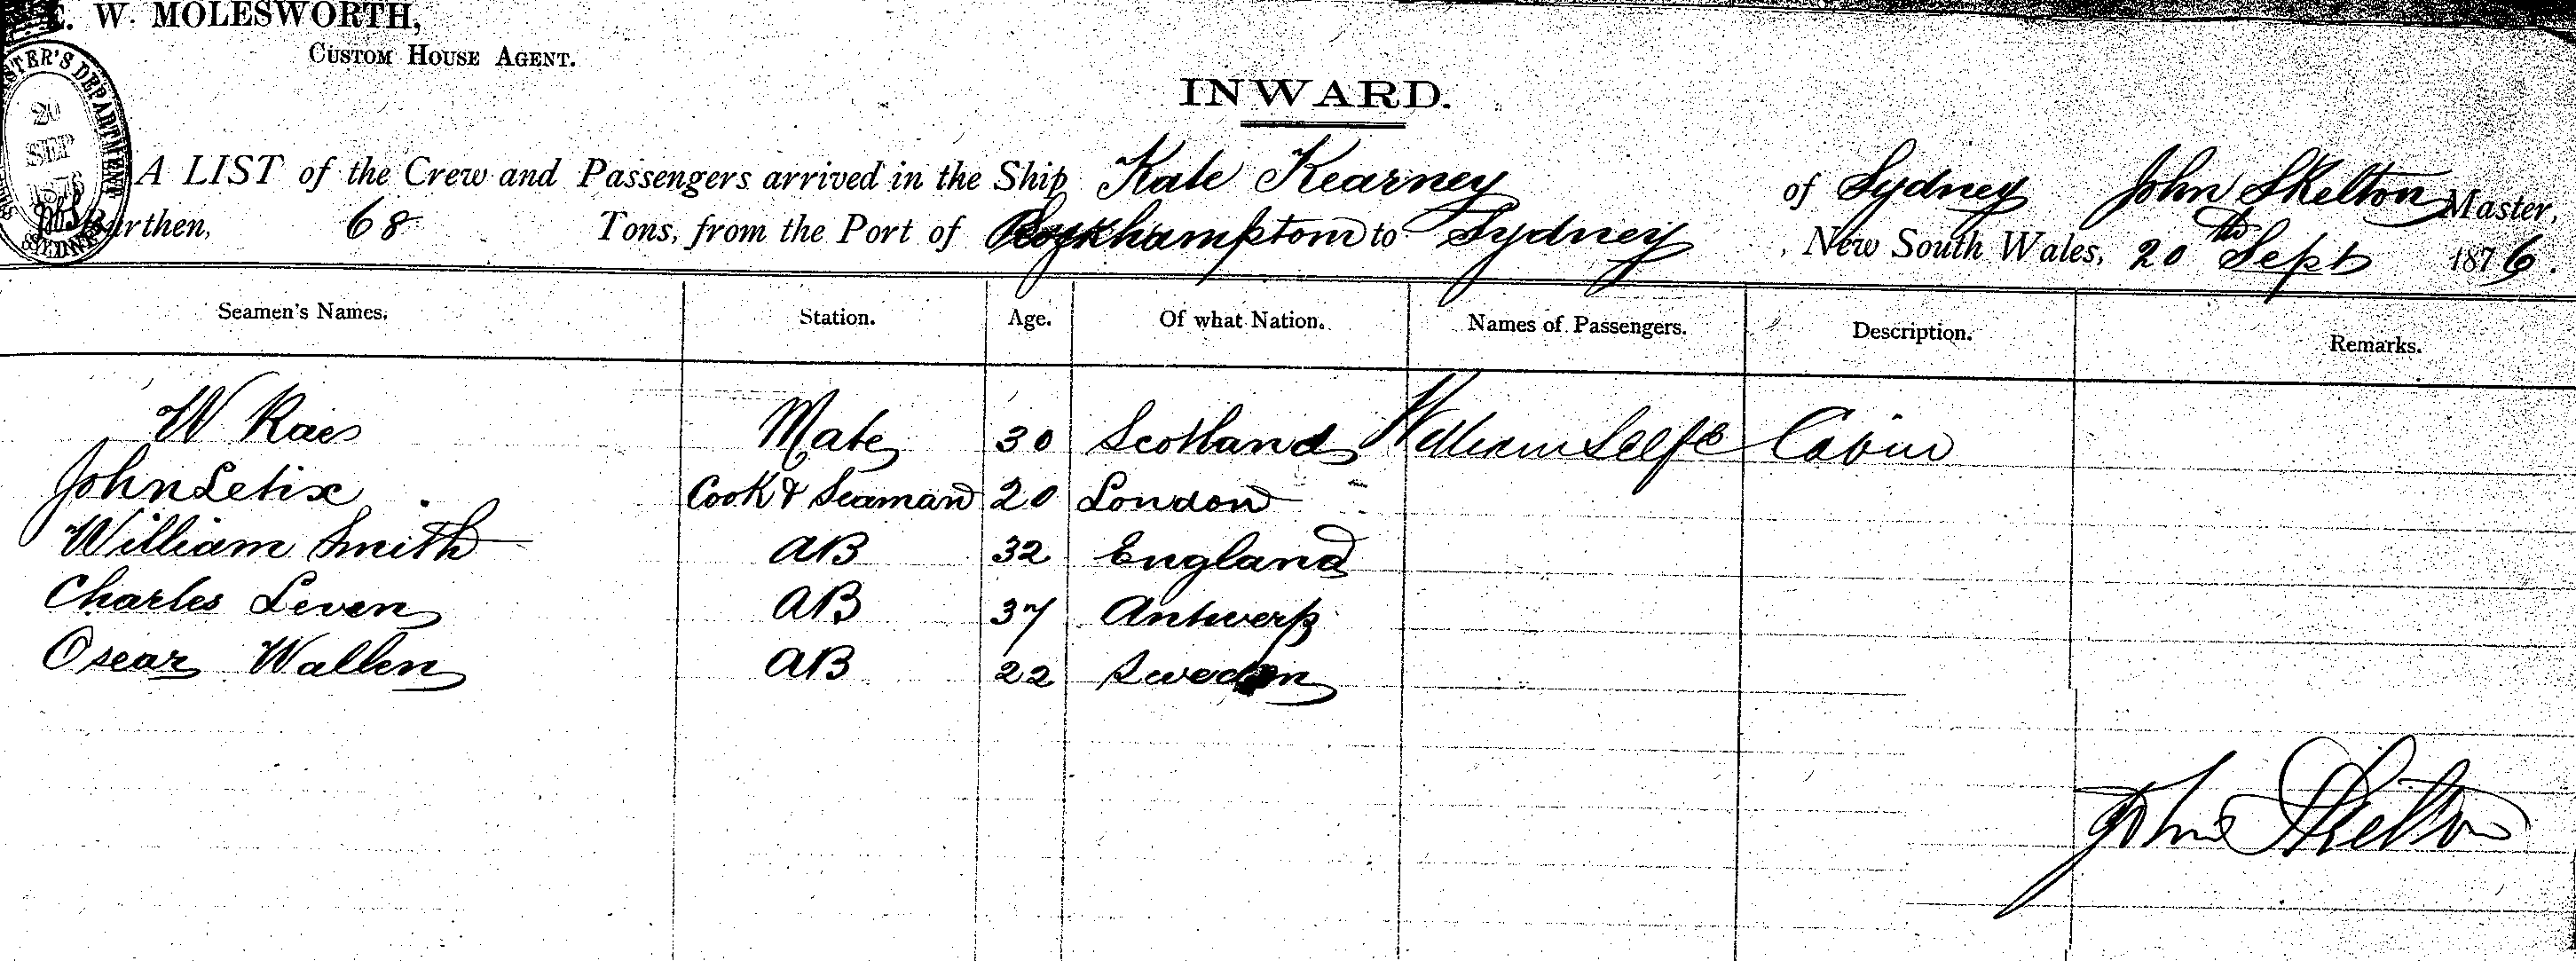 W. MOLESWORTH,
CUSTOM HOUSE AGENT.
20
SEP
1876
SYDNEY
INWARD.
A LIST of the Crew and Passengers arrived in the Ship Kate Kearney of Sydney John Skelton Master,
Burthen, 68 Tons, from the Port of Rockhampton to Sydney, New South Wales, 20th Sept 1876.
Seamen's Names. Station. Age. Of what Nation. Names of Passengers. Description. Remarks.
W Rae Mate 30 Scotland William Selfe Cabin
John Letix Cook & Seaman 20 London
William Smith AB 32 England
Charles Leven AB 37 Antwerp
Oscar Wallen AB 22 Sweden
John Skelton